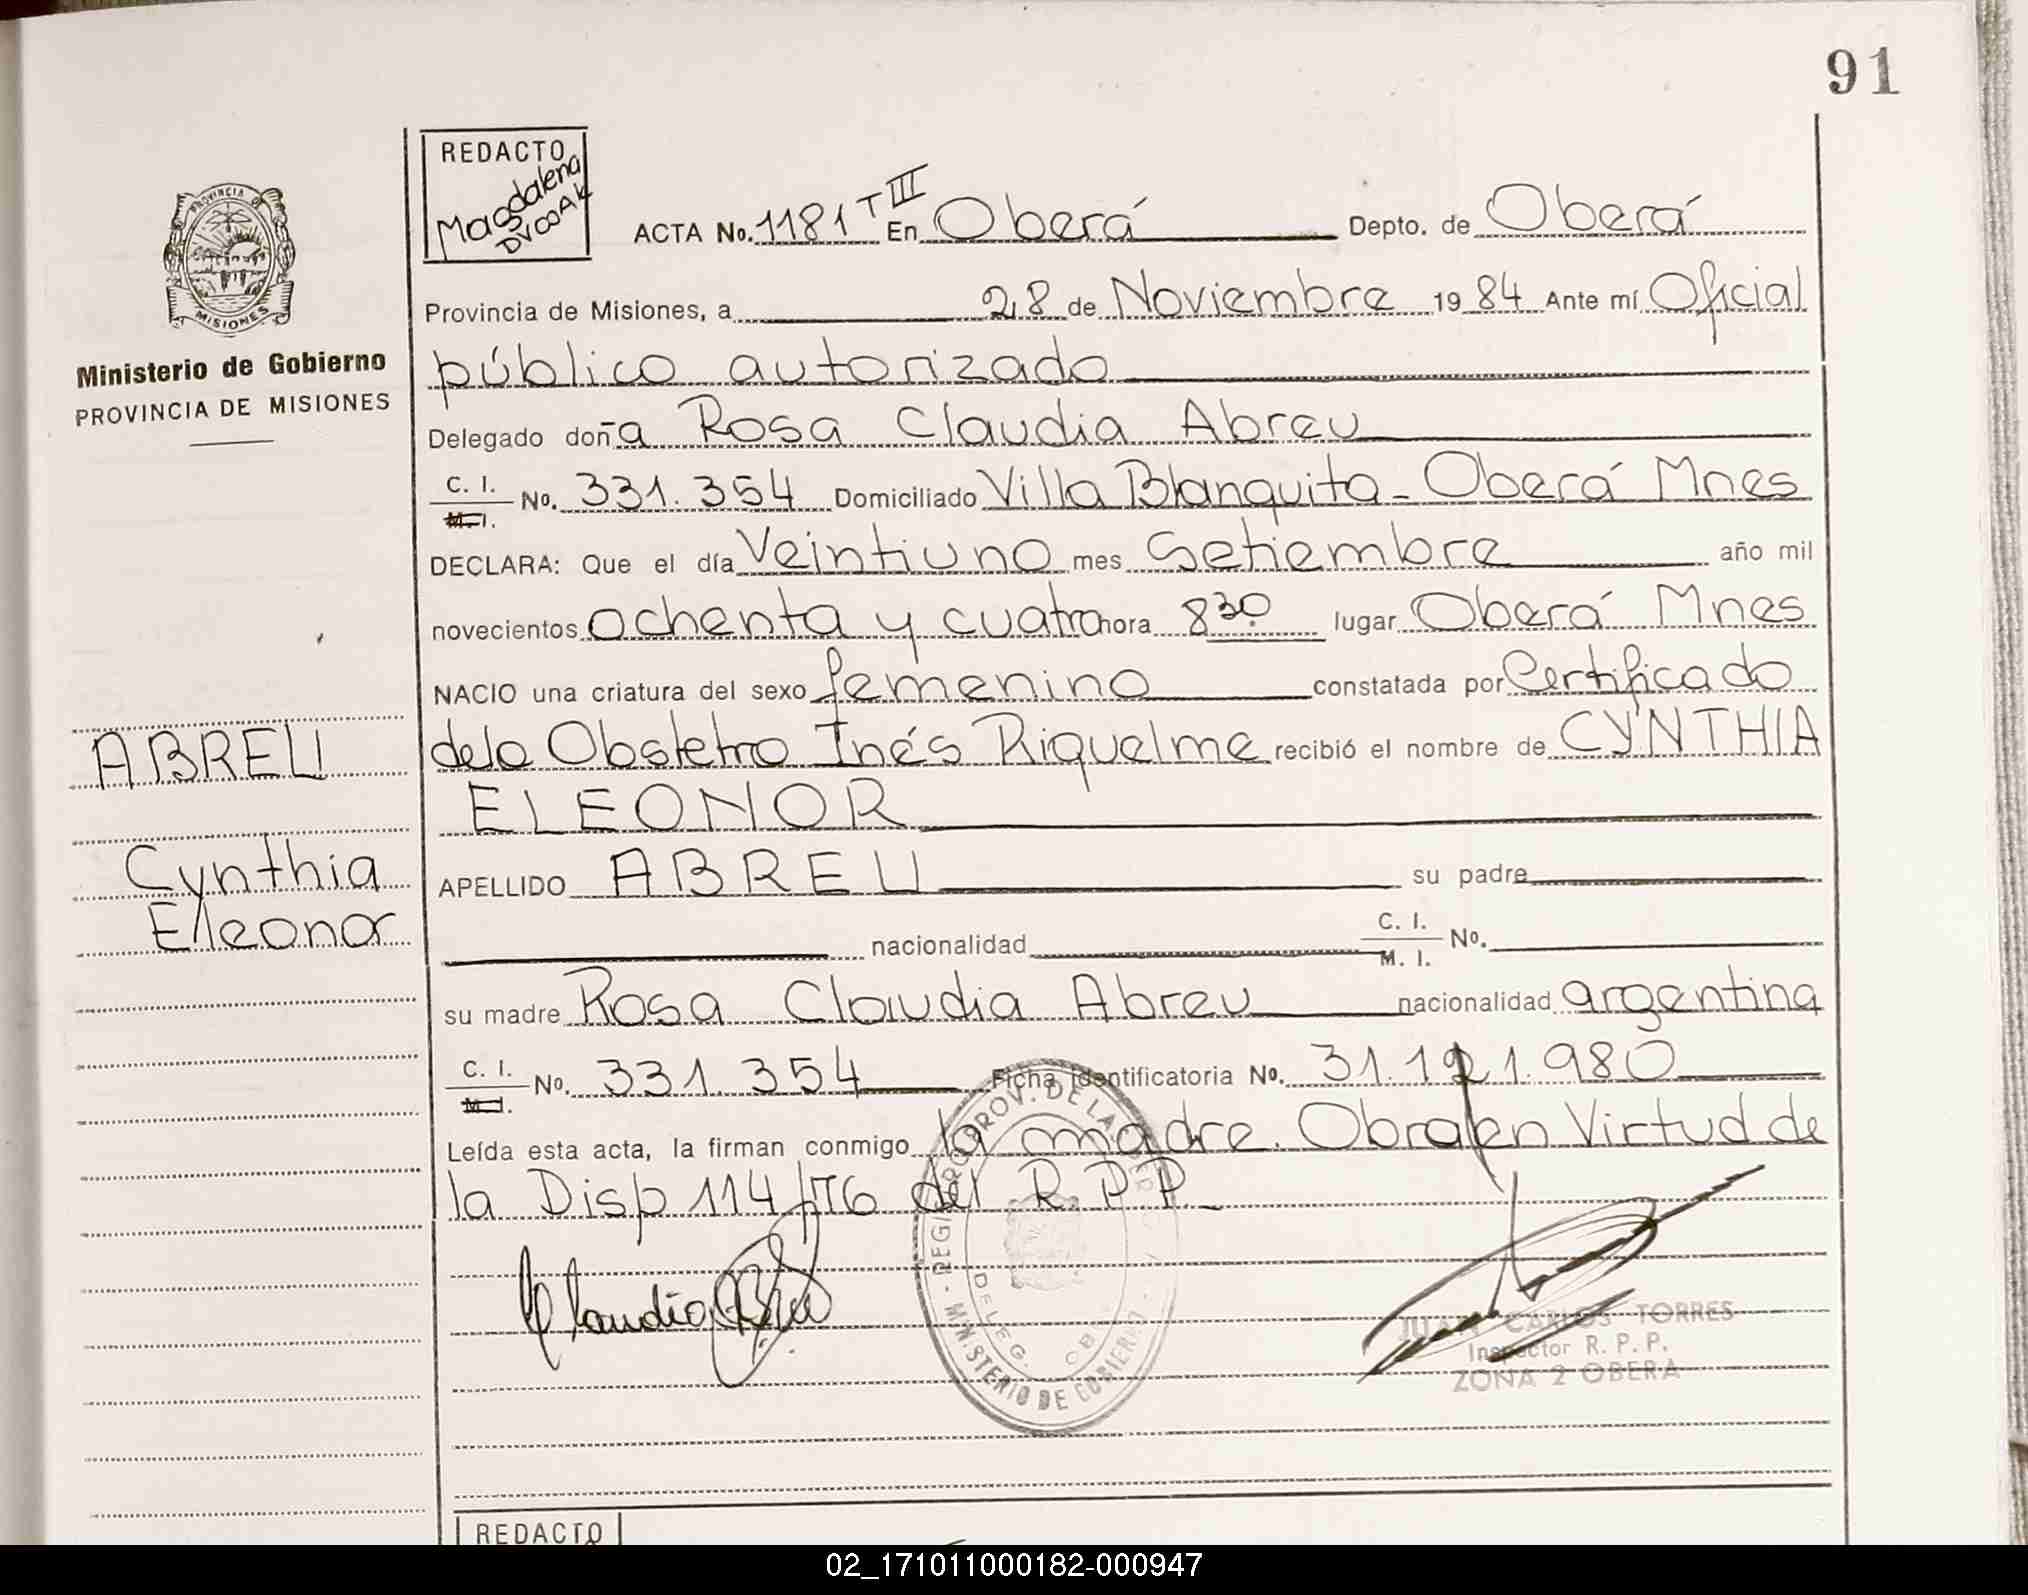 91
REDACTO
Magdalena
PROVINCIA DE
MISIONES
ACTA No. 1181 T III En Oberá Depto. de Oberá
Provincia de Misiones, a 28 de Noviembre 1984 Ante mí Oficial
Ministerio de Gobierno
PROVINCIA DE MISIONES
público autorizado
Delegado doña Rosa Claudia Abreu
C. I. No. 331.354 Domiciliado Villa Blanquita - Oberá Mnes
M. I.
DECLARA: Que el día Veintiuno mes Setiembre año mil
novecientos ochenta y cuatro hora 8 30 lugar Oberá Mnes
NACIO una criatura del sexo femenino constatada por Certificado
ABREU
de la Obstetra Inés Riquelme recibió el nombre de CYNTHIA
ELEONOR
Cynthia
Eleonor
APELLIDO ABREU su padre
nacionalidad C. I. No.
M. I.
su madre Rosa Claudia Abreu nacionalidad argentina
C. I. No. 331.354 Ficha identificatoria No. 31.121.980
M. I.
Leída esta acta, la firman conmigo la madre. Obra en Virtud de
la Disp 114/76 del R.P.P.
MINISTERIO DE GOBIERNO
DELEG.
JUAN CARLOS TORRES
Inspector R. P. P.
ZONA 2 OBERA
REDACTO
02_171011000182-000947